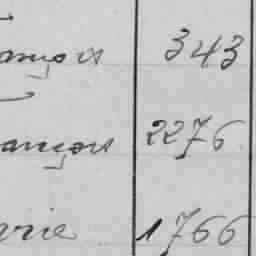 ançois 343
ançois 2276
rie 1766